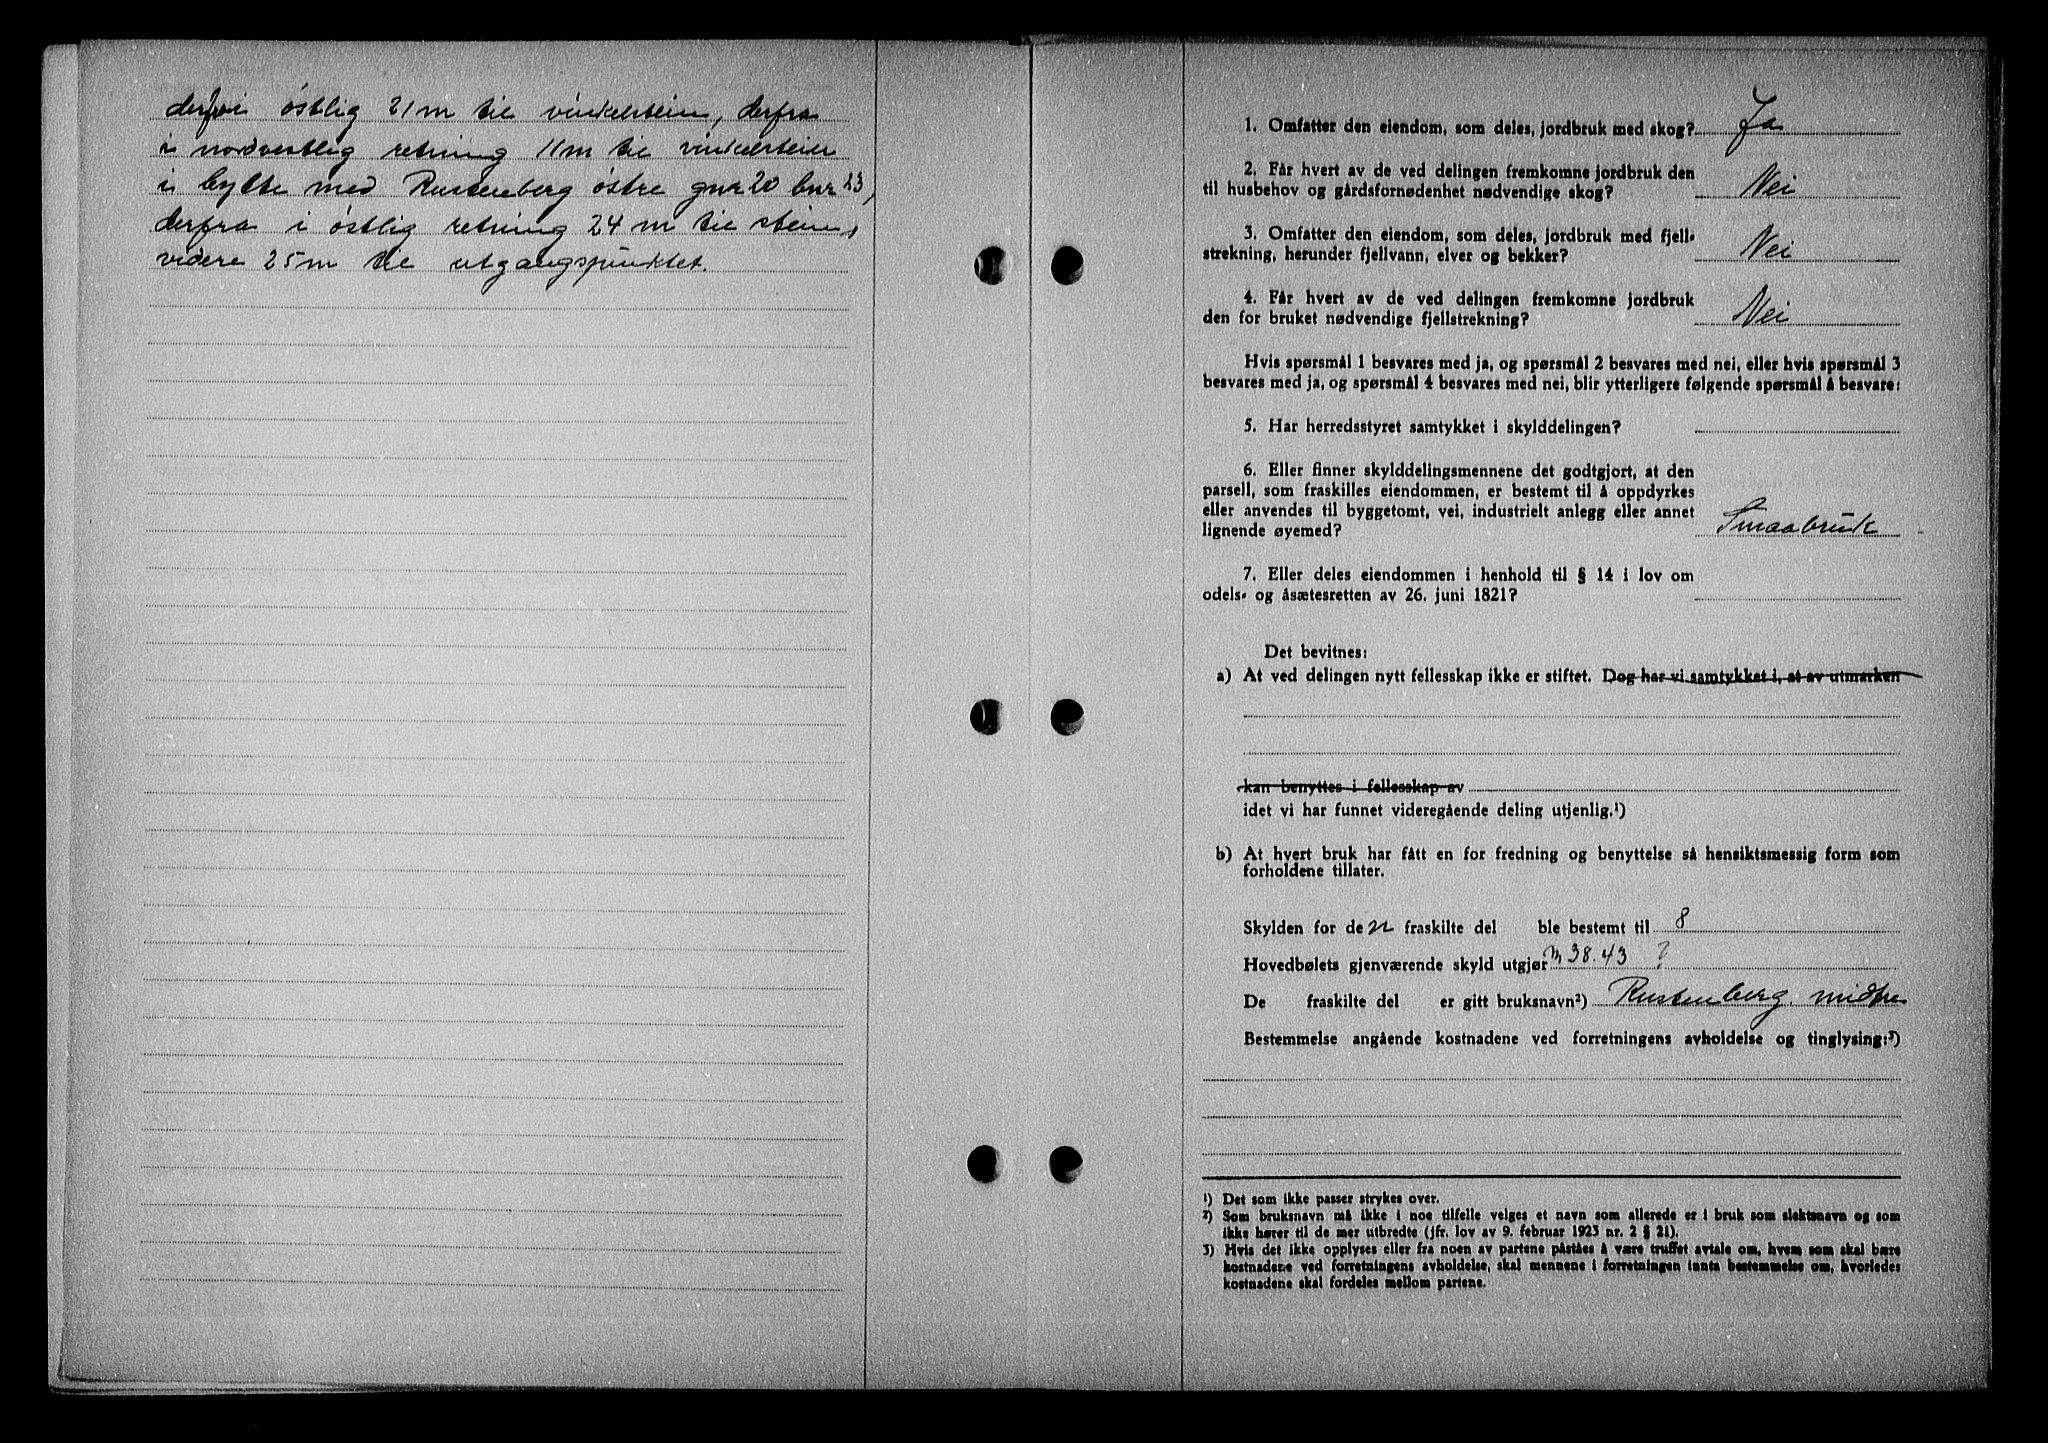 derfra i östlig 21 m til vinkelstein, derfra
i nordvestlig retning 11 m til vinkelstein
i bytte med Rustenberg östre gnr 20 bnr 23,
derfra i östlig retning 24 m til stein,
videre 25 m til utgangspunktet.
1. Omfatter den eiendom, som deles, jordbruk med skog? Ja
2. Får hvert av de ved delingen fremkomne jordbruk den
til husbehov og gårdsfornødenhet nødvendige skog? Nei
3. Omfatter den eiendom, som deles, jordbruk med fjell-
strekning, herunder fjellvann, elver og bekker? Nei
4. Får hvert av de ved delingen fremkomne jordbruk
den for bruket nødvendige fjellstrekning? Nei
Hvis spørsmål 1 besvares med ja, og spørsmål 2 besvares med nei, eller hvis spørsmål 3
besvares med ja, og spørsmål 4 besvares med nei, blir ytterligere følgende spørsmål å besvare:
5. Har herredsstyret samtykket i skylddelingen?
6. Eller finner skylddelingsmennene det godtgjort, at den
parsell, som fraskilles eiendommen, er bestemt til å oppdyrkes
eller anvendes til byggetomt, vei, industrielt anlegg eller annet
lignende øyemed? Smaabruk
7. Eller deles eiendommen i henhold til § 14 i lov om
odels- og åsætesretten av 26. juni 1821?
Det bevitnes:
a) At ved delingen nytt fellesskap ikke er stiftet. Dog har vi samtykket i, at av utmarken
kan benyttes i fellesskap av
idet vi har funnet videregående deling utjenlig.¹)
b) At hvert bruk har fått en for fredning og benyttelse så hensiktsmessig form som
forholdene tillater.
Skylden for den fraskilte del ble bestemt til 8
Hovedbølets gjenværende skyld utgjør m 38.43 ?
De fraskilte del er gitt bruksnavn²) Rustenberg midtre
Bestemmelse angående kostnadene ved forretningens avholdelse og tinglysing:³)
¹) Det som ikke passer strykes over.
²) Som bruksnavn må ikke i noe tilfelle velges et navn som allerede er i bruk som slektsnavn og som
ikke hører til de mer utbredte (jfr. lov av 9. februar 1923 nr. 2 § 21).
³) Hvis det ikke opplyses eller fra noen av partene påståes å være truffet avtale om, hvem som skal bære
kostnadene ved forretningens avholdelse, skal mennene i forretningen innta bestemmelse om, hvorledes
kostnadene skal fordeles mellom partene.